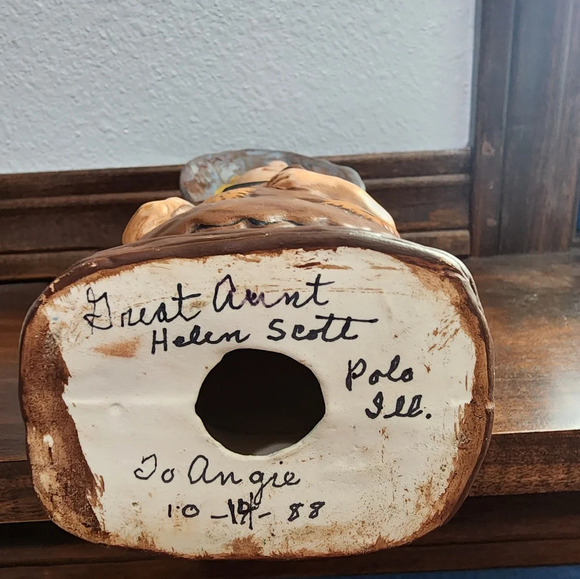 Great Aunt
Helen Scott
Polo
Ill.
To Angie
10-14-88